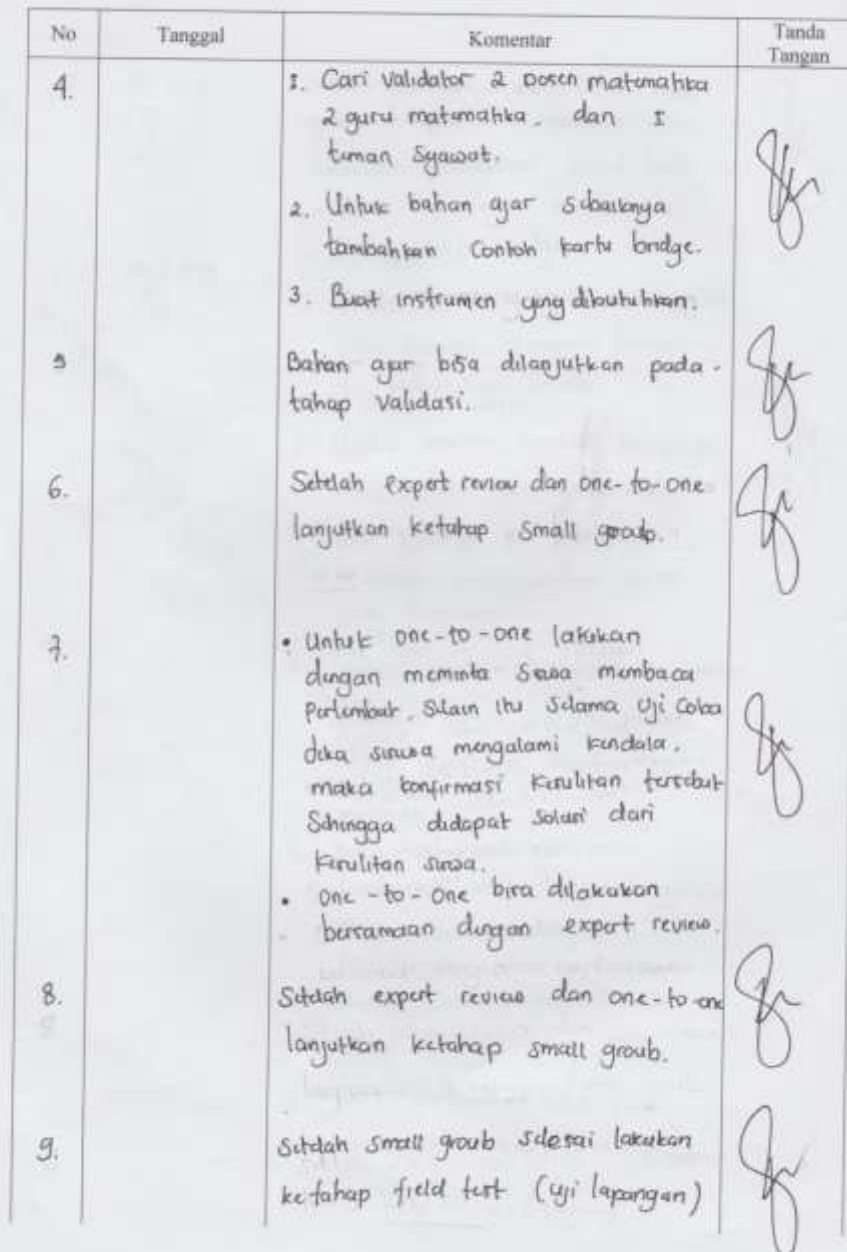 No Tanggal Komentar Tanda Tangan
4. 1. Cari Validator 2 Dosen matematika
2 guru matematika, dan 1
teman Syawat.
2. Untuk bahan ajar sebaiknya
tambahkan Contoh kartu bridge.
3. Buat instrumen yang dibutuhkan.
5 Bahan ajar bisa dilanjutkan pada
tahap validasi.
6. Setelah expert review dan one-to-one
lanjutkan ketahap Small groub.
7. • Untuk one-to-one lakukan
dengan meminta siswa membaca
perlembar. Selain itu selama uji coba
jika siswa mengalami kendala.
maka konfirmasi kesulitan tersebut
Sehingga didapat solusi dari
kesulitan siswa.
• One-to-One bisa dilakukan
bersamaan dengan expert review.
8. Setelah expert review dan one-to-one
lanjutkan ketahap small groub.
9. Setelah small groub selesai lakukan
ke tahap field test (uji lapangan)